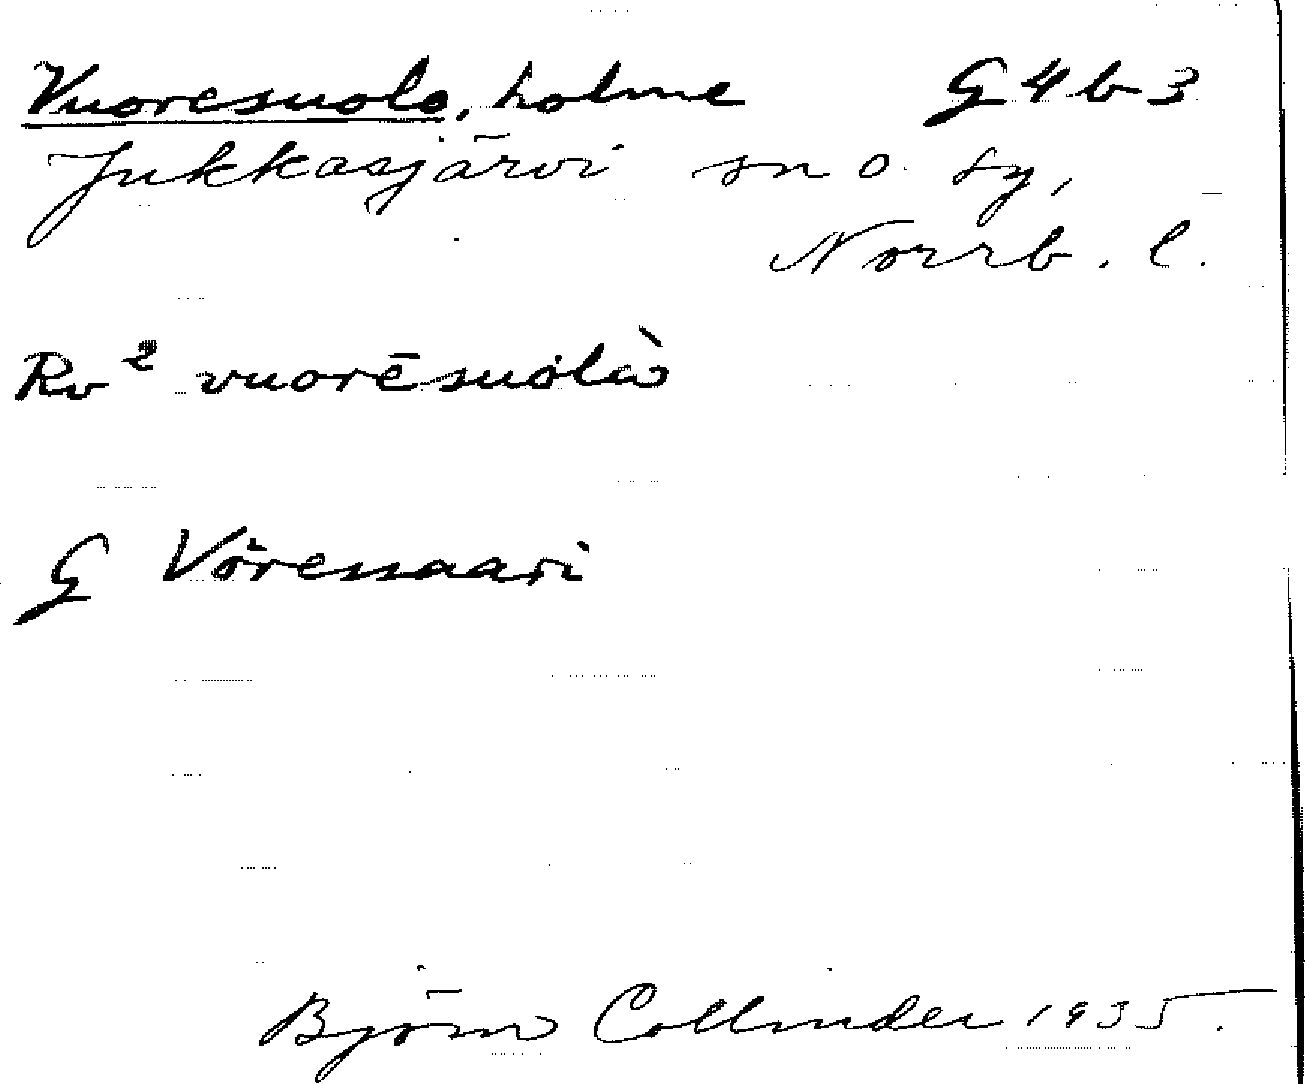 Vuoresuolo, holme G 4 b 3
Jukkasjärvi sn o. ty,
Norrb. l.
Rv² vuorēsuolà
G Vöressaari
Björn Collinder 1935.